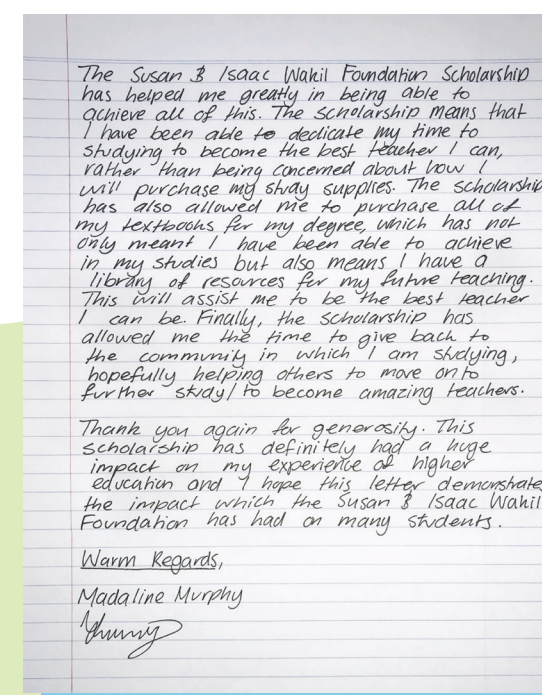 The Susan & Isaac Wakil Foundation Scholarship
has helped me greatly in being able to
achieve all of this. The scholarship means that
I have been able to dedicate my time to
studying to become the best teacher I can,
rather than being concerned about how I
will purchase my study supplies. The scholarship
has also allowed me to purchase all of
my textbooks for my degree, which has not
only meant I have been able to achieve
in my studies but also means I have a
library of resources for my future teaching.
This will assist me to be the best teacher
I can be. Finally, the scholarship has
allowed me the time to give back to
the community in which I am studying,
hopefully helping others to move onto
further study/to become amazing teachers.
Thank you again for generosity. This
scholarship has definitely had a huge
impact on my experience of higher
education and I hope this letter demonstrate
the impact which the Susan & Isaac Wakil
Foundation has had on many students.
Warm Regards,
Madaline Murphy